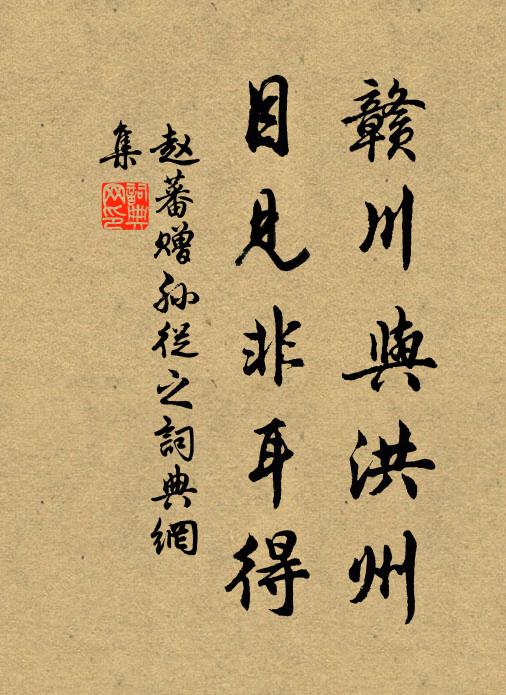 赣川與洪州
目見非耳得
赵蕃贈孙從之詞典網
集
詞典網印